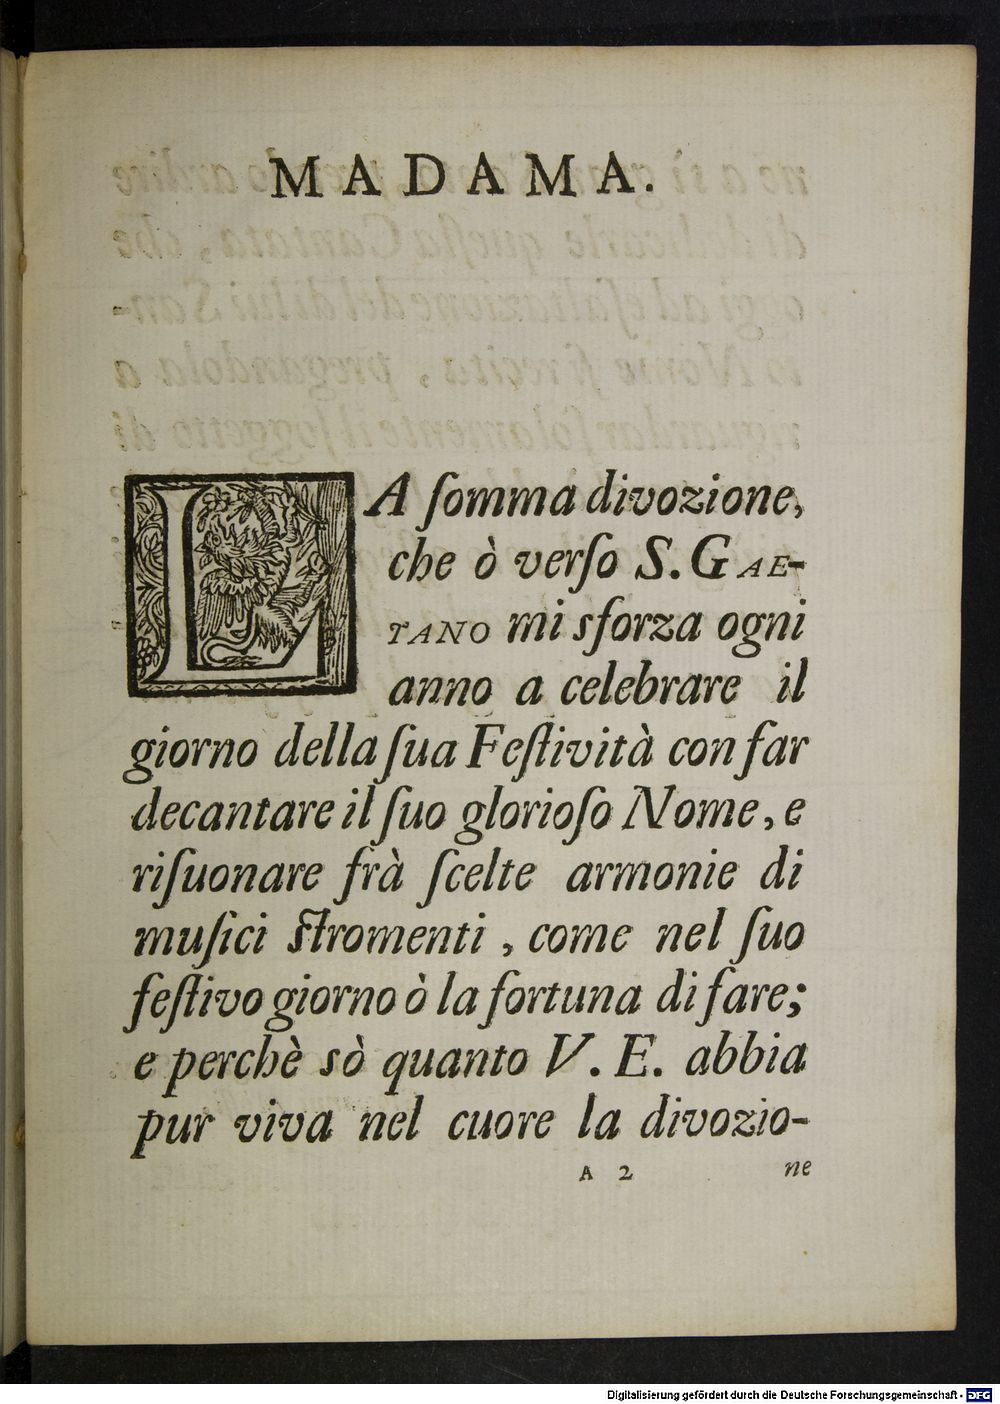 MADAMA.
LA ſomma divozione,
che ò verſo S. GAE-
TANO mi sforza ogni
anno a celebrare il
giorno della ſua Feſtività con far
decantare il ſuo glorioſo Nome, e
riſuonare frà ſcelte armonie di
muſici ſtromenti, come nel ſuo
feſtivo giorno ò la fortuna di fare;
e perchè sò quanto V. E. abbia
pur viva nel cuore la divozio-
A 2 ne
Digitalisierung gefördert durch die Deutsche Forschungsgemeinschaft - DFG